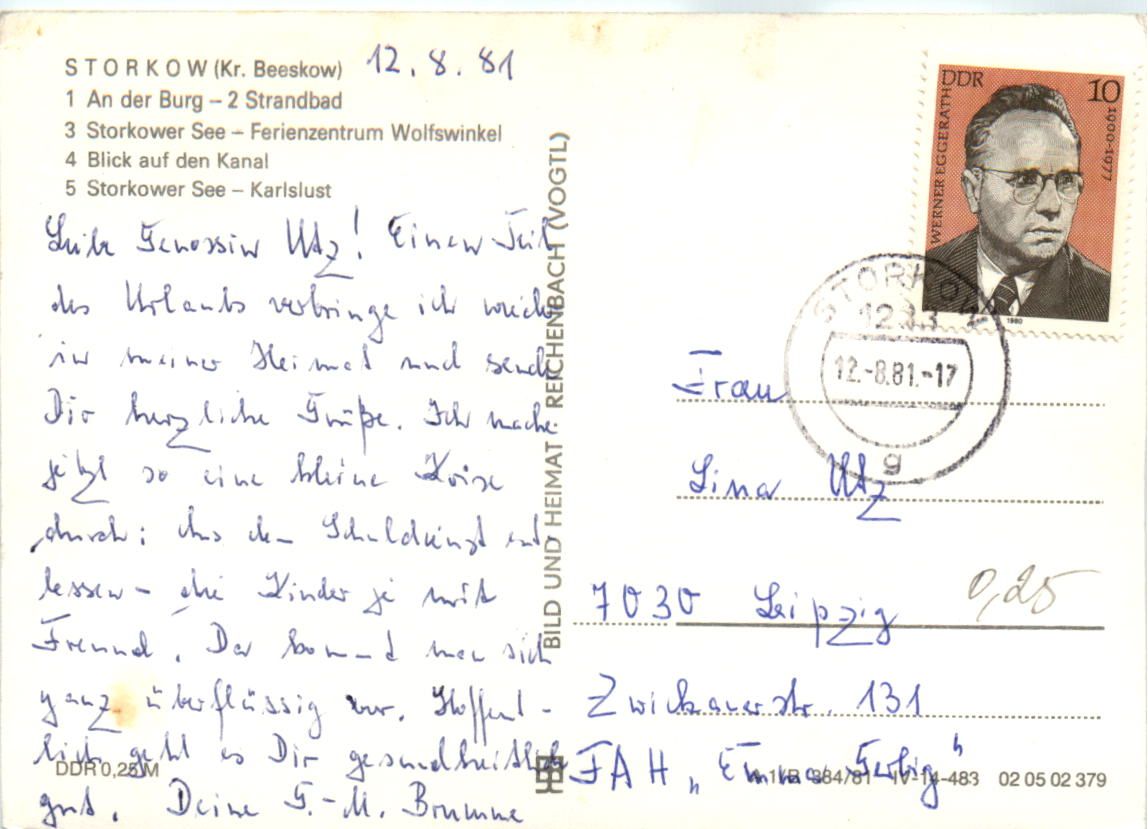 STORKOW (Kr. Beeskow) 12.8.81
1 An der Burg – 2 Strandbad
3 Storkower See – Ferienzentrum Wolfswinkel
4 Blick auf den Kanal
5 Storkower See – Karlslust
Liebe Genossin Utz! Einen Teil
des Urlaubs verbringe ich wieder
in meiner Heimat und sende
Dir herzliche Grüße. Ich mache
jetzt so eine kleine Krise
durch: Aus dem Schuldienst ent-
lassen – die Kinder je mit
Freund. Da kommt man sich
ganz überflüssig vor. Hoffent-
lich geht es Dir gesundheitlich
gut. Deine G.-M. Brumme
DDR 0,25 M
BILD UND HEIMAT REICHENBACH (VOGTL)
DDR 10
WERNER EGGERATH
1900-1977
1980
STORKOW
1233
12.-8.81.-17
g
Frau
Lina Utz
7030 Leipzig
0,25
Zwickauerstr. 131
FAH „Emma Gerbig"
384/81 IV-14-483 02 05 02 379